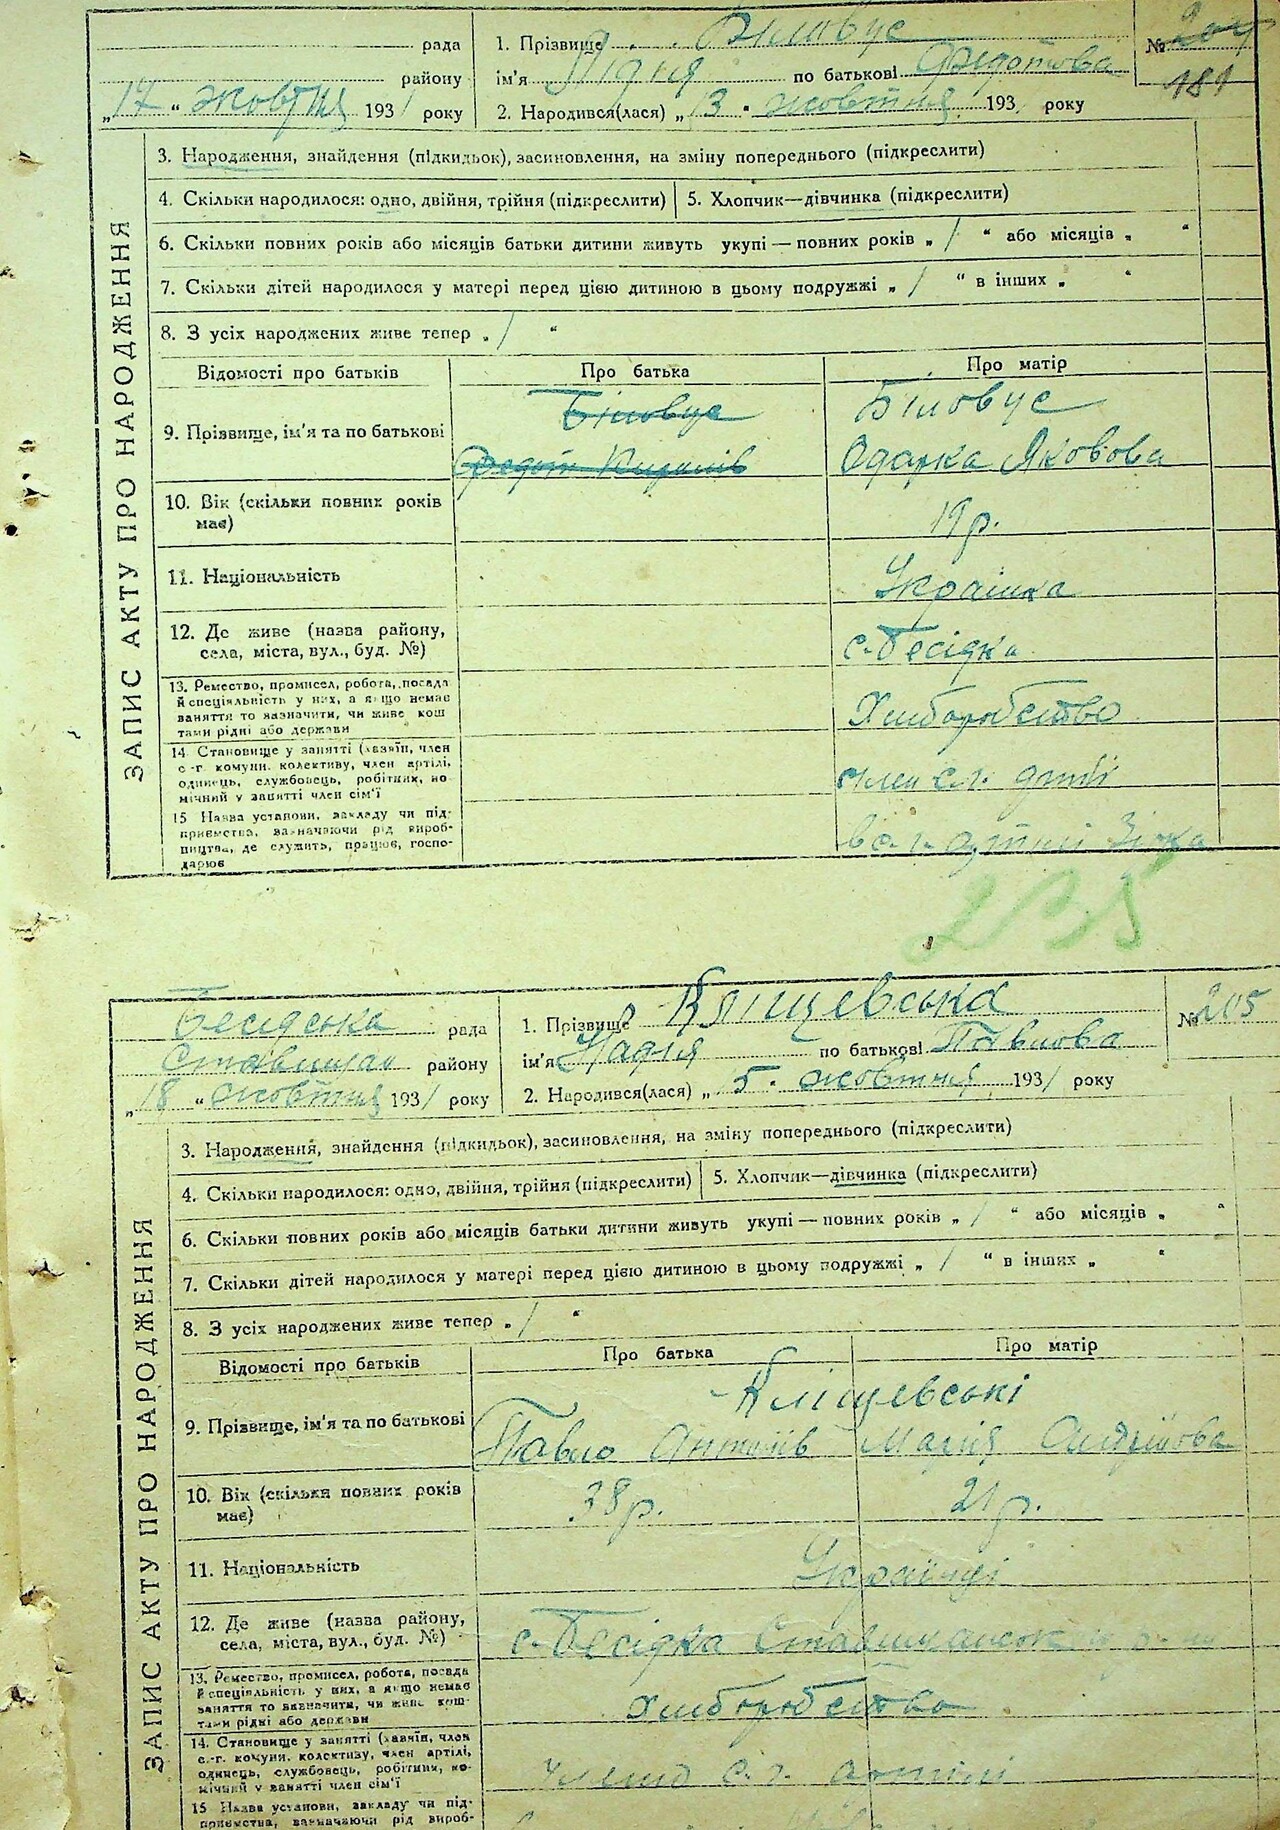 рада
району
„17 “ жовтня 1931 року
1. Прізвище Біловус
ім'я Лідия по батькові Федотова
2. Народився(лася) „13 “ жовтня 193 року
№ 204
181
ЗАПИС АКТУ ПРО НАРОДЖЕННЯ
3. Народження, знайдення (підкидьок), засиновлення, на зміну попереднього (підкреслити)
4. Скільки народилося: одно, двійня, трійня (підкреслити) 5. Хлопчик—дівчинка (підкреслити)
6. Скільки повних років або місяців батьки дитини живуть укупі — повних років „ / “ або місяців „ “
7. Скільки дітей народилося у матері перед цією дитиною в цьому подружжі „ / “ в інших „ “
8. З усіх народжених живе тепер „ / “
Відомості про батьків Про батька Про матір
9. Прізвище, ім'я та по батькові
Біловус Біловус
Федот Одарка Яковова
10. Вік (скільки повних років має) 19 р.
11. Національність Українка
12. Де живе (назва району, села, міста, вул., буд. №) с. Бесідка
13. Ремество, промисел, робота, посада
й спеціяльність у них, а якщо немає
заняття то зазначити, чи живе кош
тами рідні або держави
Хліборобство
14. Становище у занятті (хазяїн, член
с.-г. комуни, колективу, член артілі,
одинець, службовець, робітник, по
мічний у занятті член сім'ї
член с. г. артілі
15 Назва установи, закладу чи під-
приємства, зазначаючи рід вироб-
ництва, де служить, працює, госпо-
дарює
в с. г. артілі Зірка
235
Бесідська рада
району
„18 “ жовтня 1931 року
1. Прізвище Кліщевська
ім'я Надія по батькові Павлова
2. Народився(лася) „ 5 “ жовтня 1931 року
№ 205
ЗАПИС АКТУ ПРО НАРОДЖЕННЯ
3. Народження, знайдення (підкидьок), засиновлення, на зміну попереднього (підкреслити)
4. Скільки народилося: одно, двійня, трійня (підкреслити) 5. Хлопчик—дівчинка (підкреслити)
6. Скільки повних років або місяців батьки дитини живуть укупі — повних років „ / “ або місяців „ “
7. Скільки дітей народилося у матері перед цією дитиною в цьому подружжі „ / “ в інших „ “
8. З усіх народжених живе тепер „ / “
Відомості про батьків Про батька Про матір
9. Прізвище, ім'я та по батькові
Кліщевські
Павло Антонів Марія Андрійова
10. Вік (скільки повних років має) 38 р. 21 р.
11. Національність Українці
12. Де живе (назва району, села, міста, вул., буд. №) с. Бесідка
13. Ремество, промисел, робота, посада
й спеціяльність у них, а якщо немає
заняття то зазначити, чи живе кош-
тами рідні або держави
Хліборобство
14. Становище у занятті (хазяїн, член
с.-г. комуни, колективу, член артілі,
одинець, службовець, робітник, по-
мічний у занятті член сім'ї
с. г. артілі
15 Назва установи, закладу чи під-
приємства, зазначаючи рід вироб-